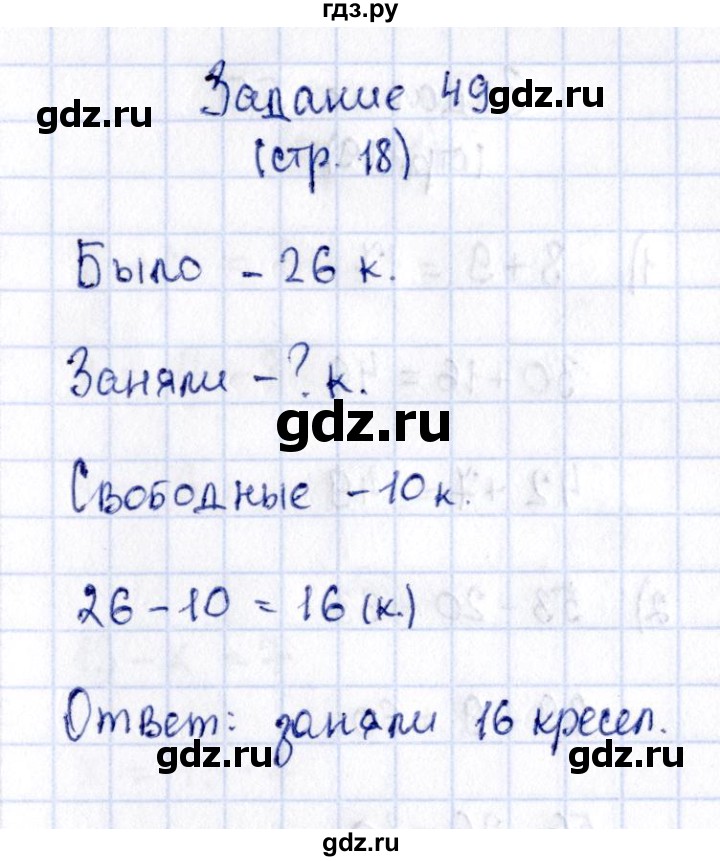 гдз.ру
Задание 49
gdz.ru
gdz.ru
(стр. 18)
Было - 26 к.
Заняли - ? к.
gdz.ru
Свободные - 10 к.
26 - 10 = 16 (к.)
Ответ: заняли 16 кресел.
gdz.ru
gdz.ru
gdz.ru